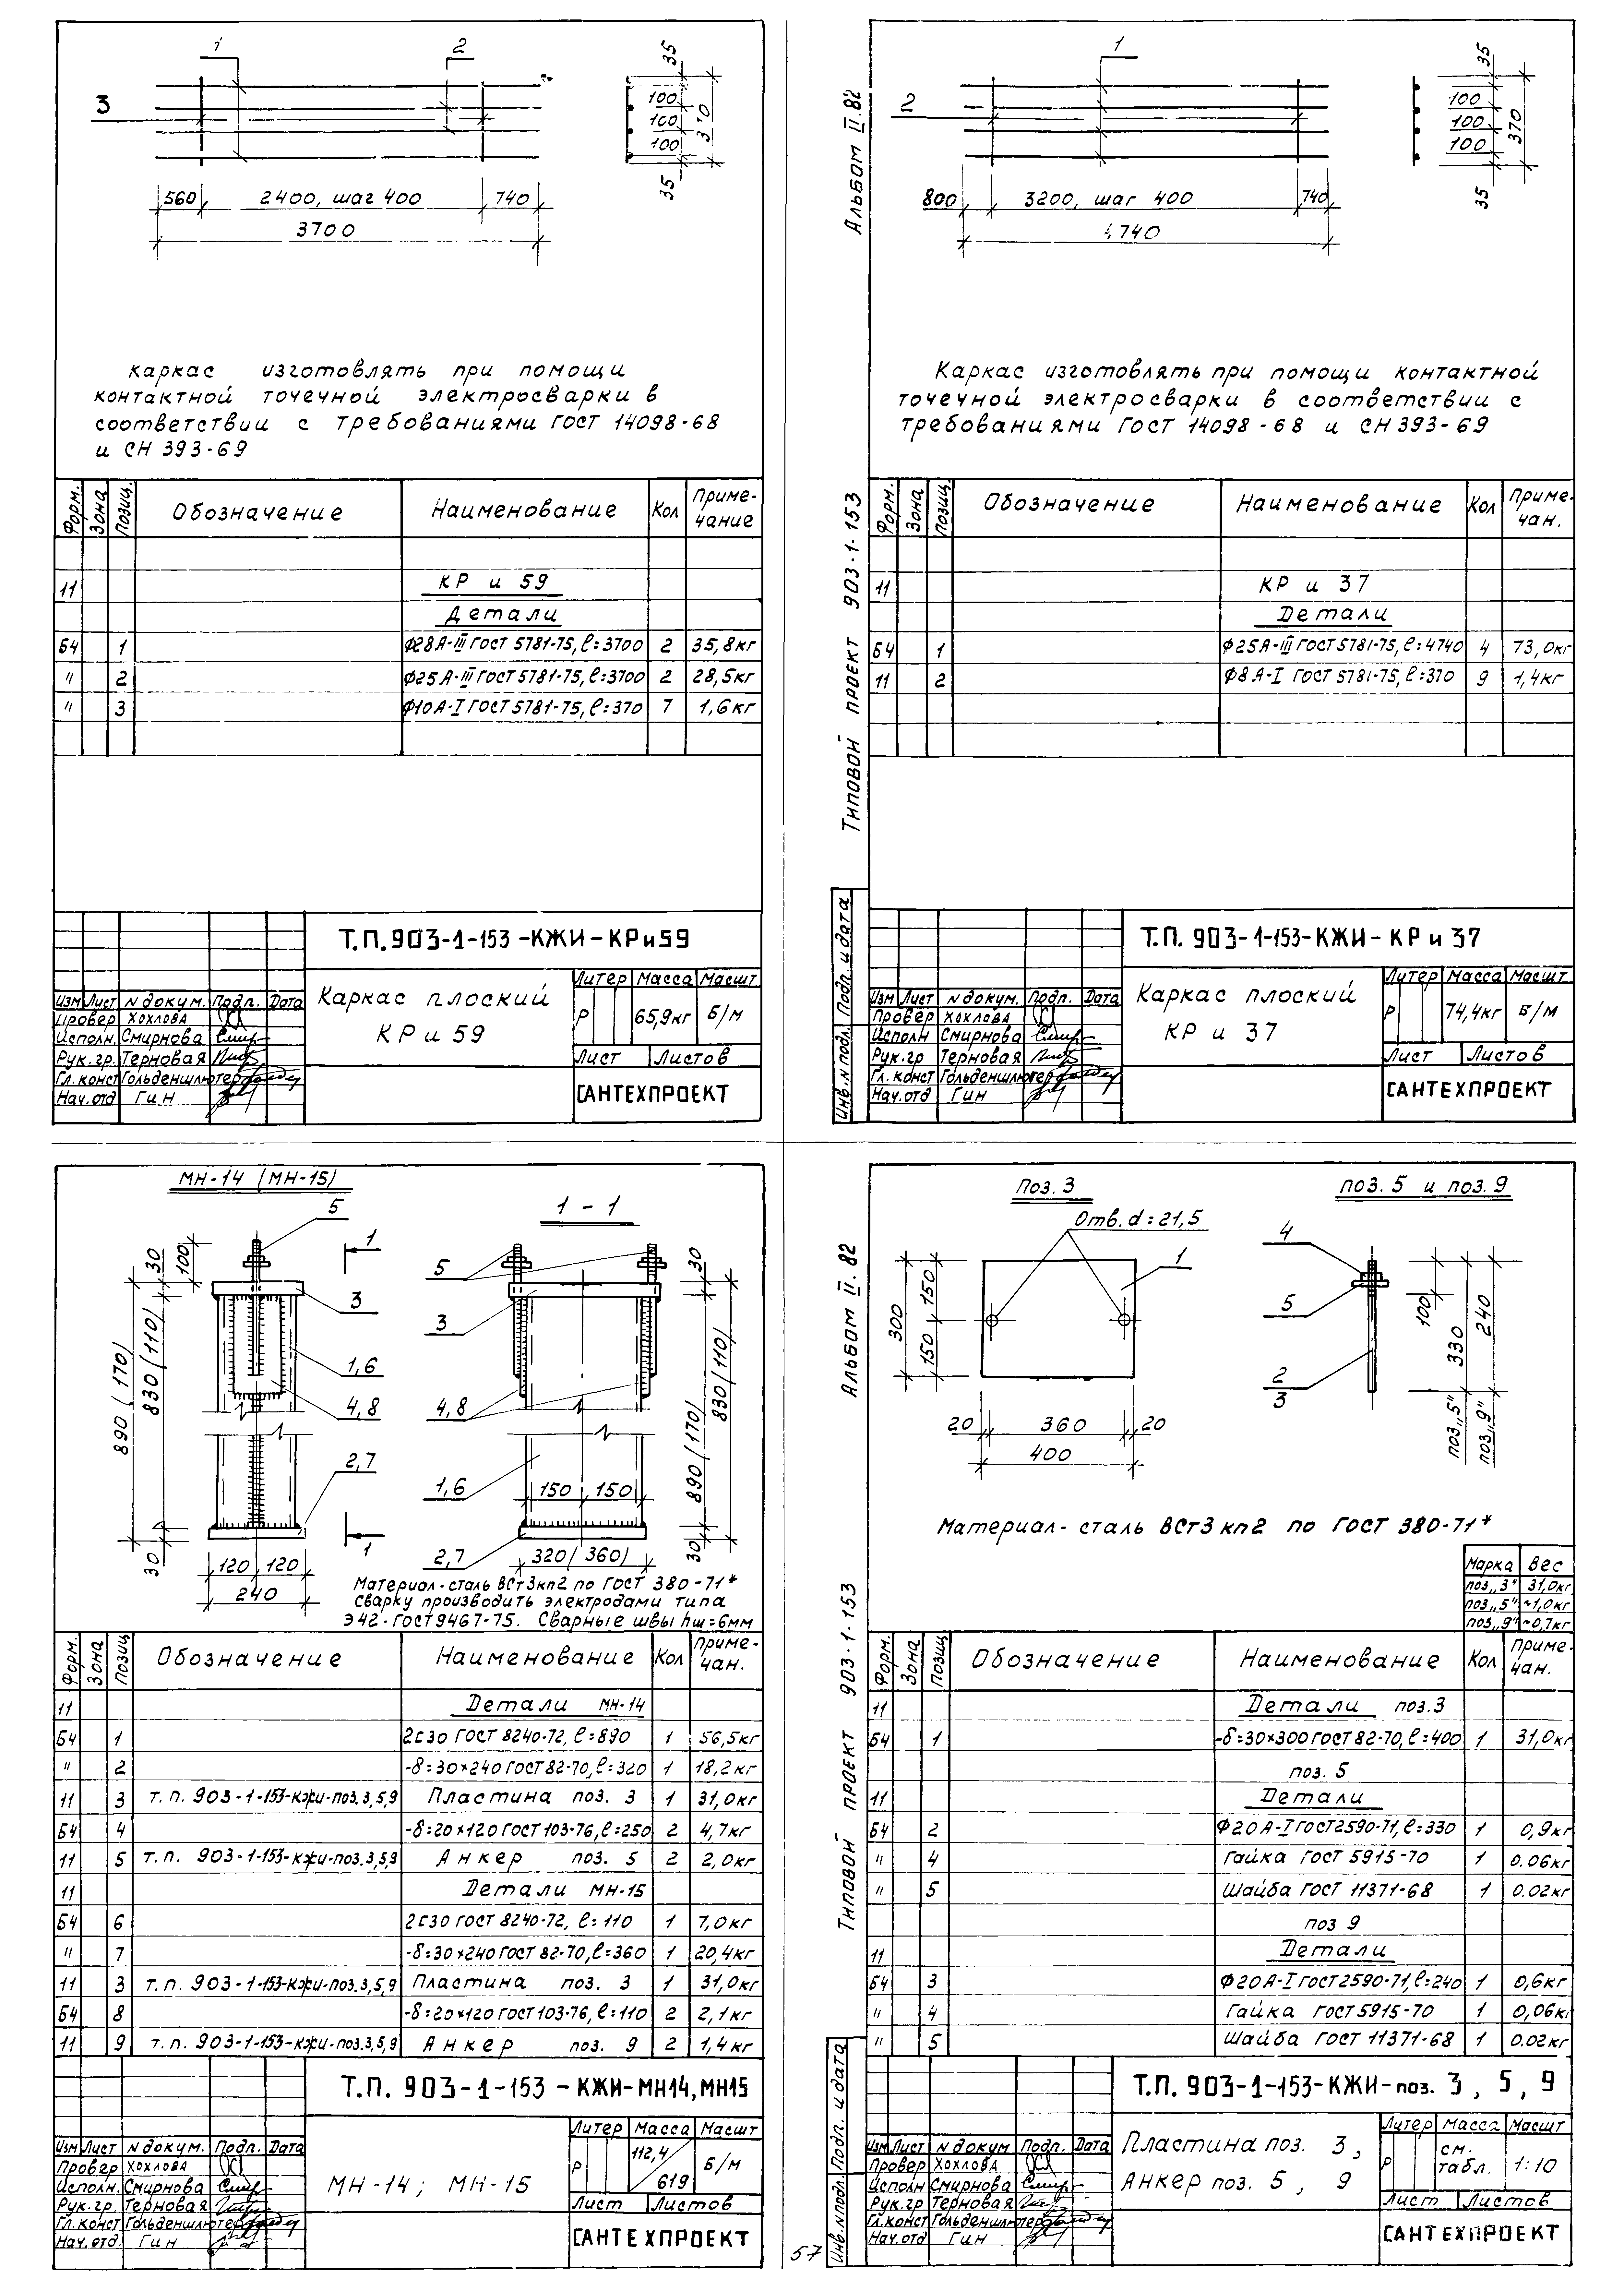 1
2
3
35
100
100
100
35
560
2400, шаг 400
740
3700
Каркас изготовлять при помощи
контактной точечной электросварки в
соответствии с требованиями ГОСТ 14098-68
и СН 393-69
Форм. Зона Позиц. Обозначение Наименование Кол Приме-
чание
11 КР и 59
Детали
Б4 1 Ф28А-III ГОСТ 5781-75, ℓ=3700 2 35,8кг
" 2 Ф25А-III ГОСТ 5781-75, ℓ=3700 2 28,5кг
" 3 Ф10А-I ГОСТ 5781-75, ℓ=370 7 1,6кг
Т.П.903-1-153-КЖИ-КРи59
Каркас плоский
КРи 59
Литер Масса Масшт
Р 65,9кг Б/М
Лист Листов
САНТЕХПРОЕКТ
Изм Лист N докум. Подп. Дата
Провер Хохлова
Исполн. Смирнова
Рук.гр. Терновая
Гл.конст Гольденшлютер
Нач.отд Гин
Альбом II.82
Типовой проект 903-1-153
Инв.N подл. Подп. и дата
1
2
35
100
100
100
370
35
800
3200, шаг 400
740
4740
Каркас изготовлять при помощи контактной
точечной электросварки в соответствии с
требованиями ГОСТ 14098-68 и СН 393-69
Форм. Зона Позиц. Обозначение Наименование Кол Приме-
чан.
11 КР и 37
Детали
Б4 1 Ф25А-III ГОСТ 5781-75, ℓ=4740 4 73,0кг
11 2 Ф8А-I ГОСТ 5781-75, ℓ=370 9 1,4кг
Т.П. 903-1-153-КЖИ-КР и 37
Каркас плоский
КР и 37
Литер Масса Масшт
Р 74,4кг Б/М
Лист Листов
САНТЕХПРОЕКТ
Изм Лист N докум. Подп. Дата
Провер Хохлова
Исполн Смирнова
Рук.гр Терновая
Гл.конст Гольденшлютер
Нач.отд Гин
МН-14 (МН-15)
5
1
30
100
3
1,6
4,8
2,7
890 (170)
830 (110)
30
120 120
240
1
1 - 1
5
3
4,8
1,6
2,7
150 150
320 (360)
30
830 (110)
890 (170)
30
Материал-сталь ВСт3кп2 по ГОСТ 380-71*
Сварку производить электродами типа
Э42-ГОСТ9467-75. Сварные швы hш=6мм
Форм. Зона Позиц Обозначение Наименование Кол Приме-
чан.
11 Детали МН-14
Б4 1 2[30 ГОСТ 8240-72, ℓ=890 1 56,5кг
" 2 -δ=30×240 ГОСТ 82-70, ℓ=320 1 18,2кг
11 3 т.п. 903-1-153-кжи-поз.3,5,9 Пластина поз. 3 1 31,0кг
Б4 4 -δ=20×120 ГОСТ 103-76, ℓ=250 2 4,7кг
11 5 т.п. 903-1-153-кжи-поз.3,5,9 Анкер поз. 5 2 2,0кг
11 Детали МН-15
Б4 6 2[30 ГОСТ 8240-72, ℓ=110 1 7,0кг
" 7 -δ=30×240 ГОСТ 82-70, ℓ=360 1 20,4кг
11 3 т.п. 903-1-153-кжи-поз.3,5,9 Пластина поз. 3 1 31,0кг
Б4 8 -δ=20×120 ГОСТ 103-76, ℓ=110 2 2,1кг
11 9 т.п. 903-1-153-кжи-поз.3,5,9 Анкер поз. 9 2 1,4кг
Т.П. 903-1-153-КЖИ-МН14,МН15
МН-14; МН-15
Литер Масса Масшт
Р 112,4 619 Б/М
Лист Листов
САНТЕХПРОЕКТ
Изм Лист N докум. Подп. Дата
Провер Хохлова
Исполн. Смирнова
Рук.гр. Терновая
Гл.конст Гольденшлютер
Нач.отд. Гин
57
Альбом II. 82
Типовой проект 903-1-153
Инв.N подл. Подп. и дата
Поз. 3
Отв. d=21,5
1
300
150
150
20 360 20
400
поз. 5 и поз. 9
4
5
2
3
100
330
240
поз„5"
поз„9"
Материал-сталь ВСт3кп2 по ГОСТ 380-71*
Марка Вес
поз„3" 31,0кг
поз„5" ~1,0кг
поз„9" ~0,7кг
Форм. Зона Позиц. Обозначение Наименование Кол Приме-
чан.
11 Детали поз.3
Б4 1 -δ=30×300 ГОСТ 82-70, ℓ=400 1 31,0кг
поз. 5
11 Детали
Б4 2 Ф20А-I ГОСТ2590-71, ℓ=330 1 0,9кг
" 4 Гайка ГОСТ 5915-70 1 0.06кг
" 5 Шайба ГОСТ 11371-68 1 0.02кг
поз 9
11 Детали
Б4 3 Ф20А-I ГОСТ2590-71, ℓ=240 1 0,6кг
" 4 Гайка ГОСТ5915-70 1 0,06кг
" 5 Шайба ГОСТ 11371-68 1 0.02кг
Т.П. 903-1-153-КЖИ-поз. 3, 5, 9
Пластина поз. 3,
Анкер поз. 5, 9
Литер Масса Масшт
Р см.
табл. 1:10
Лист Листов
САНТЕХПРОЕКТ
Изм Лист N докум Подп. Дата
Провер Хохлова
Исполн Смирнова
Рук.гр Терновая
Гл.конст Гольденшлютер
Нач.отд Гин